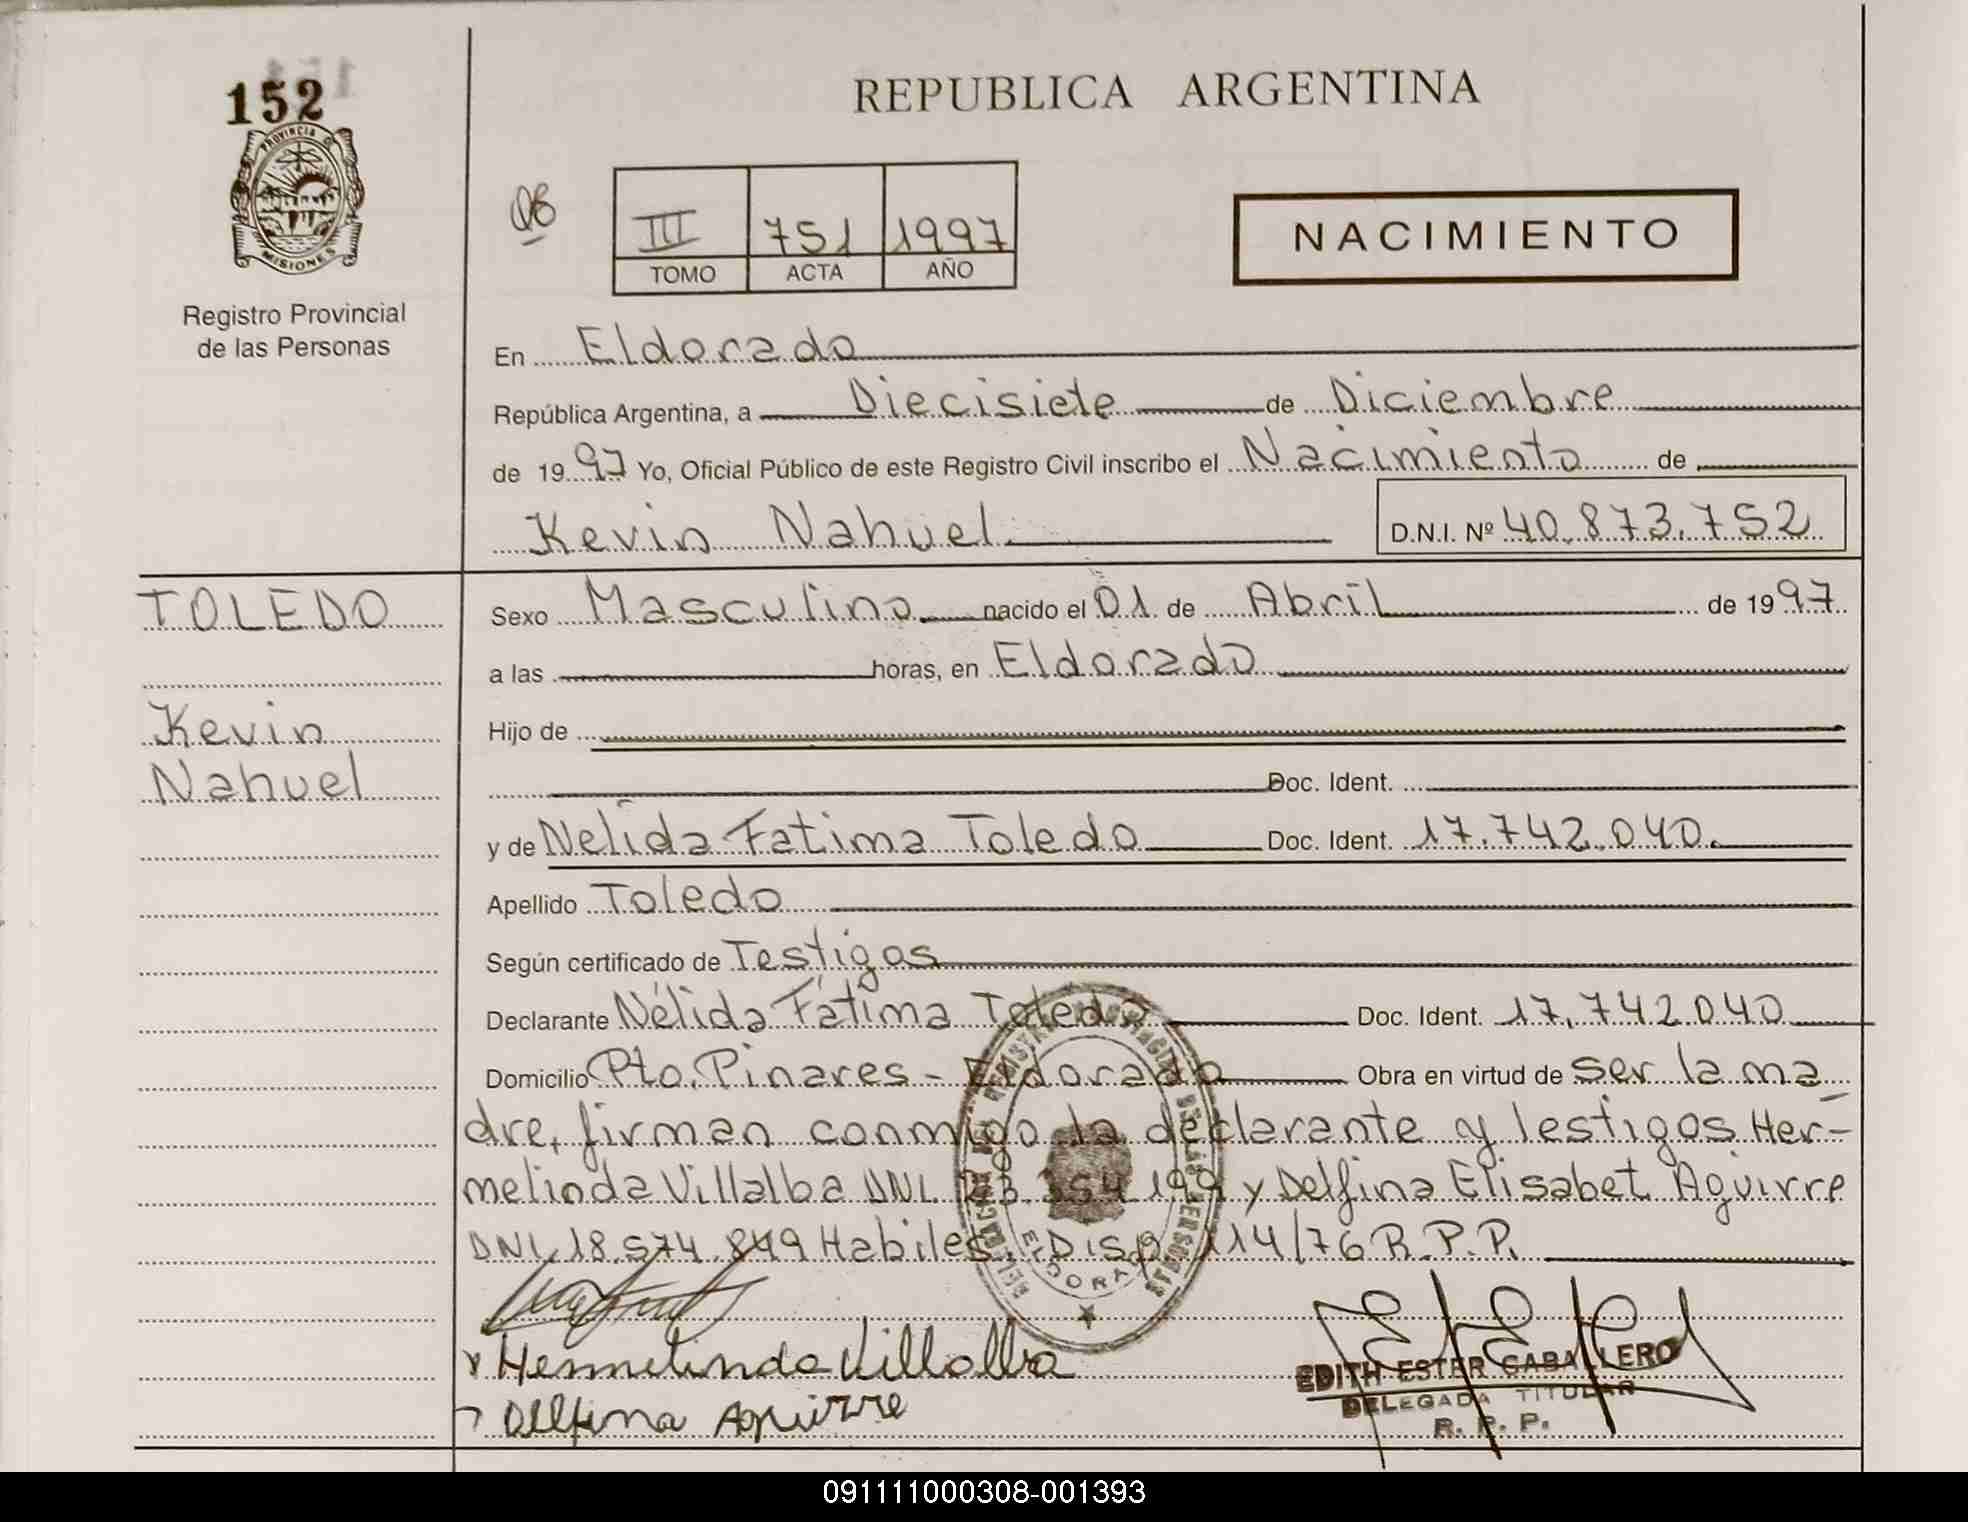 152
REPUBLICA ARGENTINA
PROVINCIA D
MISIONES
III 751 1997
TOMO ACTA AÑO
NACIMIENTO
Registro Provincial
de las Personas
En Eldorado
República Argentina, a Diecisiete de Diciembre
de 1997 Yo, Oficial Público de este Registro Civil inscribo el Nacimiento de
Kevin Nahuel. D.N.I. Nº 40.873.752
TOLEDO
Kevin
Nahuel
Sexo Masculino nacido el 01 de Abril de 1997
a las horas, en Eldorado
Hijo de
Doc. Ident.
y de Nelida Fatima Toledo Doc. Ident. 17.742.040.
Apellido Toledo
Según certificado de Testigos
Declarante Nélida Fátima Toledo Doc. Ident. 17.742.040
Domicilio Pto. Pinares - Eldorado Obra en virtud de ser la ma
dre, firman conmigo la declarante y testigos Her-
melinda Villalba DNI. 354 199 y Delfina Elisabet Aguirre
DNI. 18.574.849 Habiles. Disp. 114/76 R.P.P.
Hermelinda Villalba
Delfina Aguirre
EDITH ESTER CABALLERO
DELEGADA TITULAR
R. P. P.
091111000308-001393